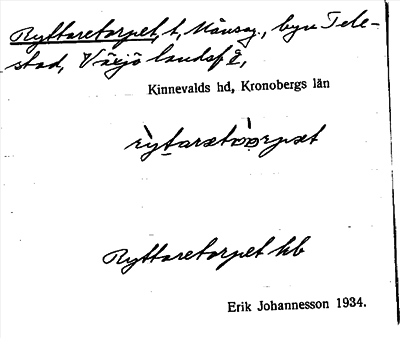 Ryttaretorpet, t, Månsag., byn Tele-
stad, Växjö landsf,
Kinnevalds hd, Kronobergs län
Ryttaretorpet hb
Erik Johannesson 1934.